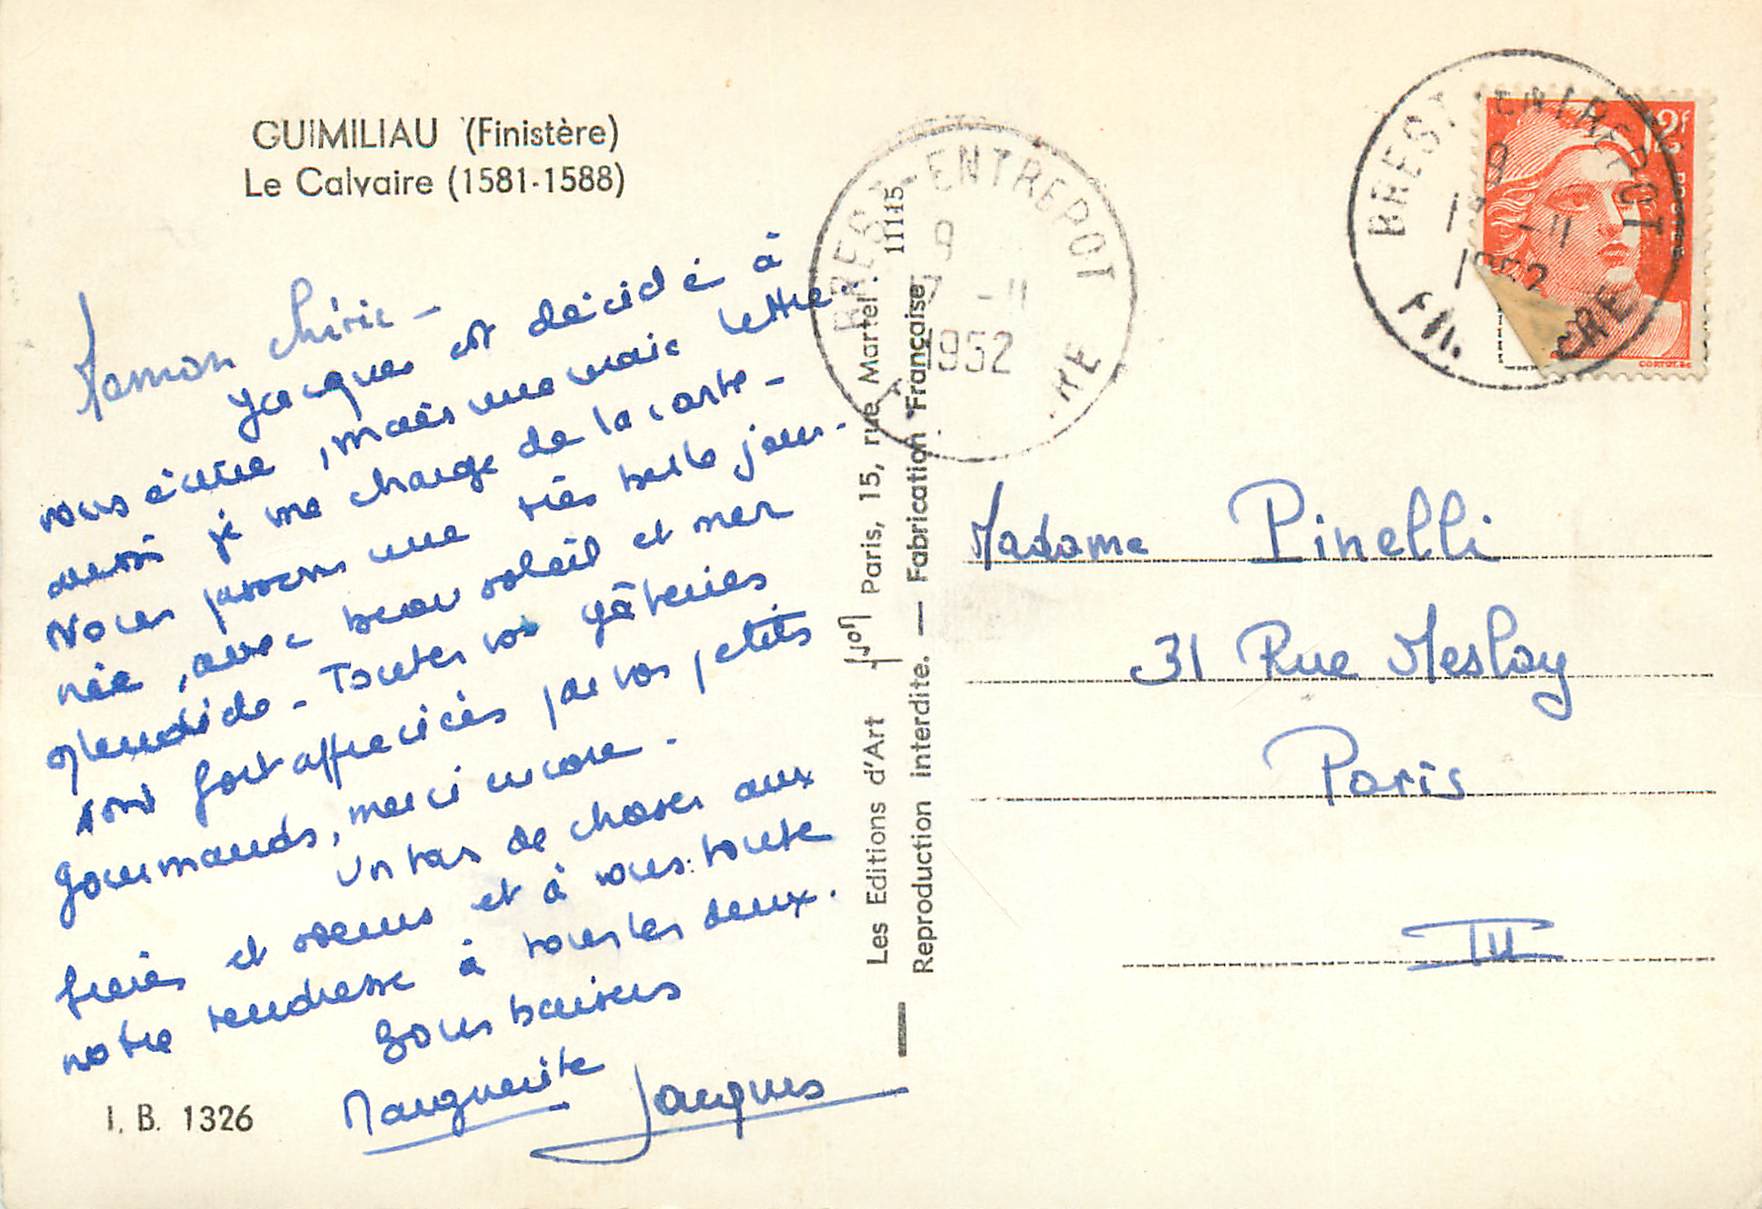 GUIMILIAU (Finistère)
Le Calvaire (1581-1588)
Maman chérie -
Jacques est décidé à
vous écrire, mais une vraie lettre
aussi je me charge de la carte -
Nous passons une très belle jour-
née, avec beau soleil et mer
splendide - Toutes vos gâteries
sont fort appréciées par vos petits
gourmands, merci encore -
Un tas de choses aux
frères et sœurs et à vous toute
notre tendresse à tous les deux.
Bons baisers
Marguerite Jacques
I. B. 1326
Les Editions d'Art Yvon Paris, 15, rue Martel. 11115
Reproduction interdite. — Fabrication Française
BREST-ENTREPOT
9
7 -11
1952
RE
BREST-ENTREPOT
9
-11
1952
FIN. ERE
12f
Madame Pinelli
31 Rue Meslay
Paris
III